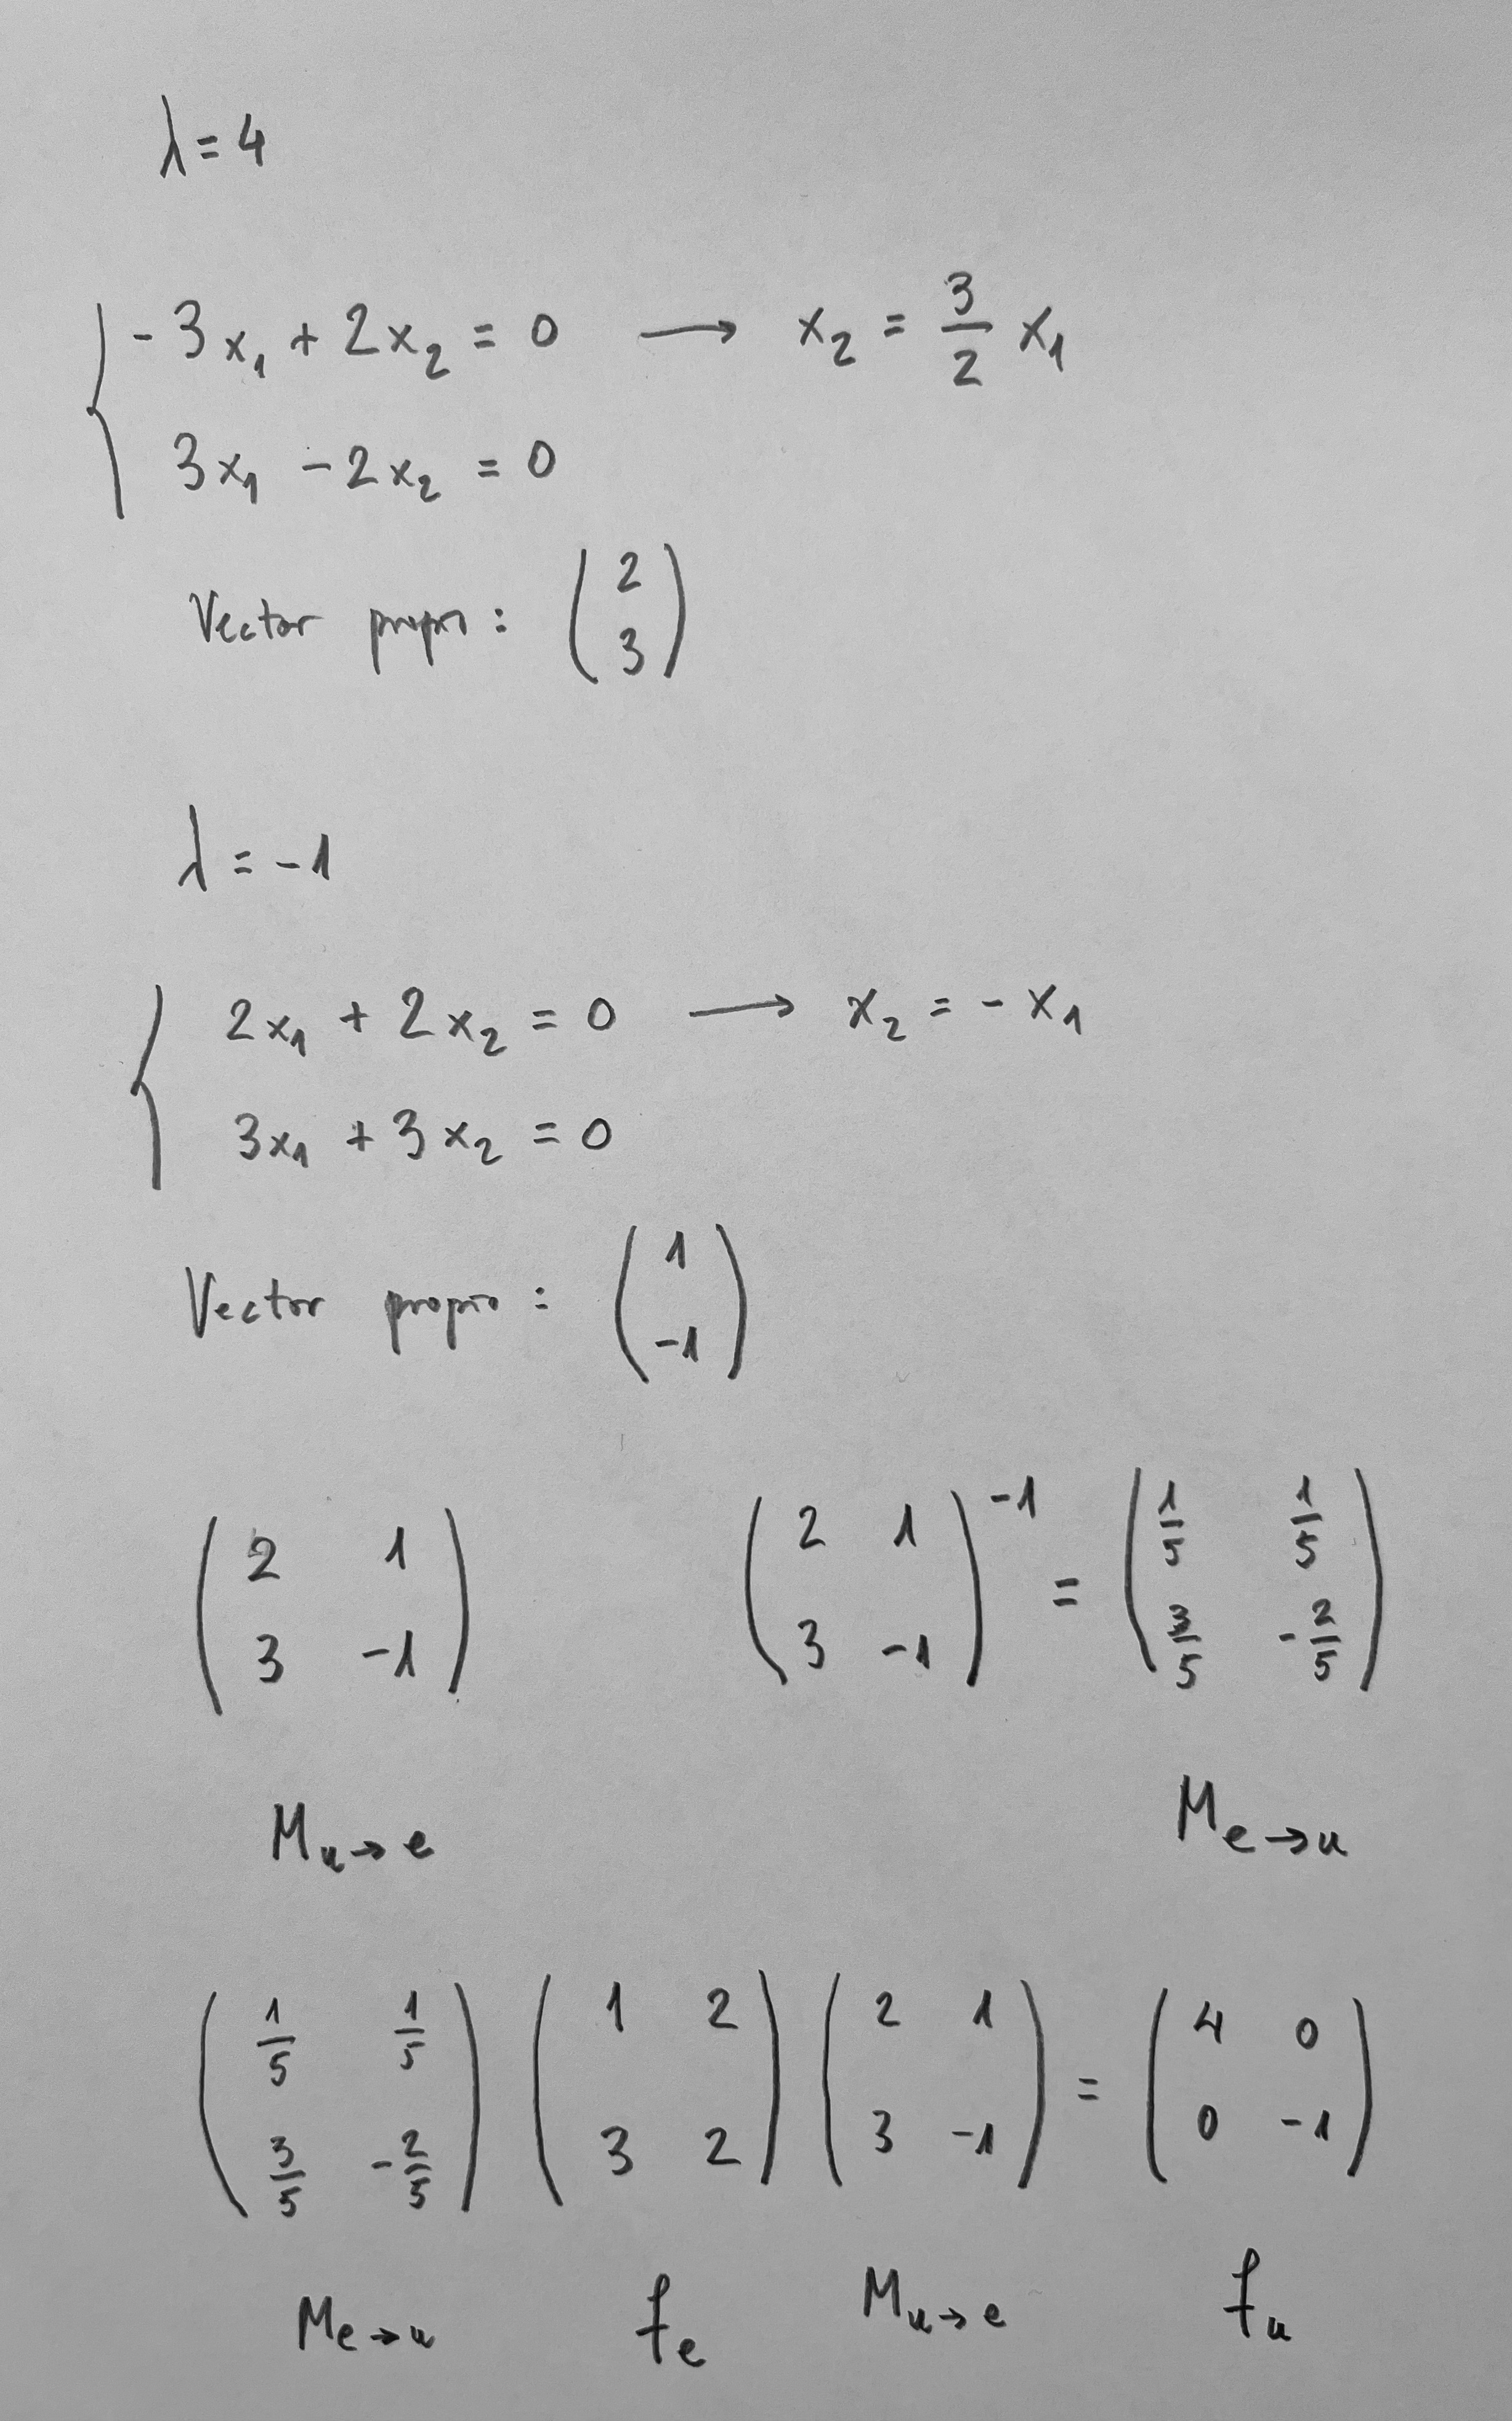 λ = 4
- 3x₁ + 2x₂ = 0 → x₂ = 3/2 x₁
3x₁ - 2x₂ = 0
Vector propio : (2 3)
λ = -1
2x₁ + 2x₂ = 0 → x₂ = - x₁
3x₁ + 3x₂ = 0
Vector propio : (1 -1)
(2 1; 3 -1) (2 1; 3 -1)⁻¹ = (1/5 1/5; 3/5 -2/5)
M u→e M e→u
(1/5 1/5; 3/5 -2/5) (1 2; 3 2) (2 1; 3 -1) = (4 0; 0 -1)
M e→u f e M u→e f u